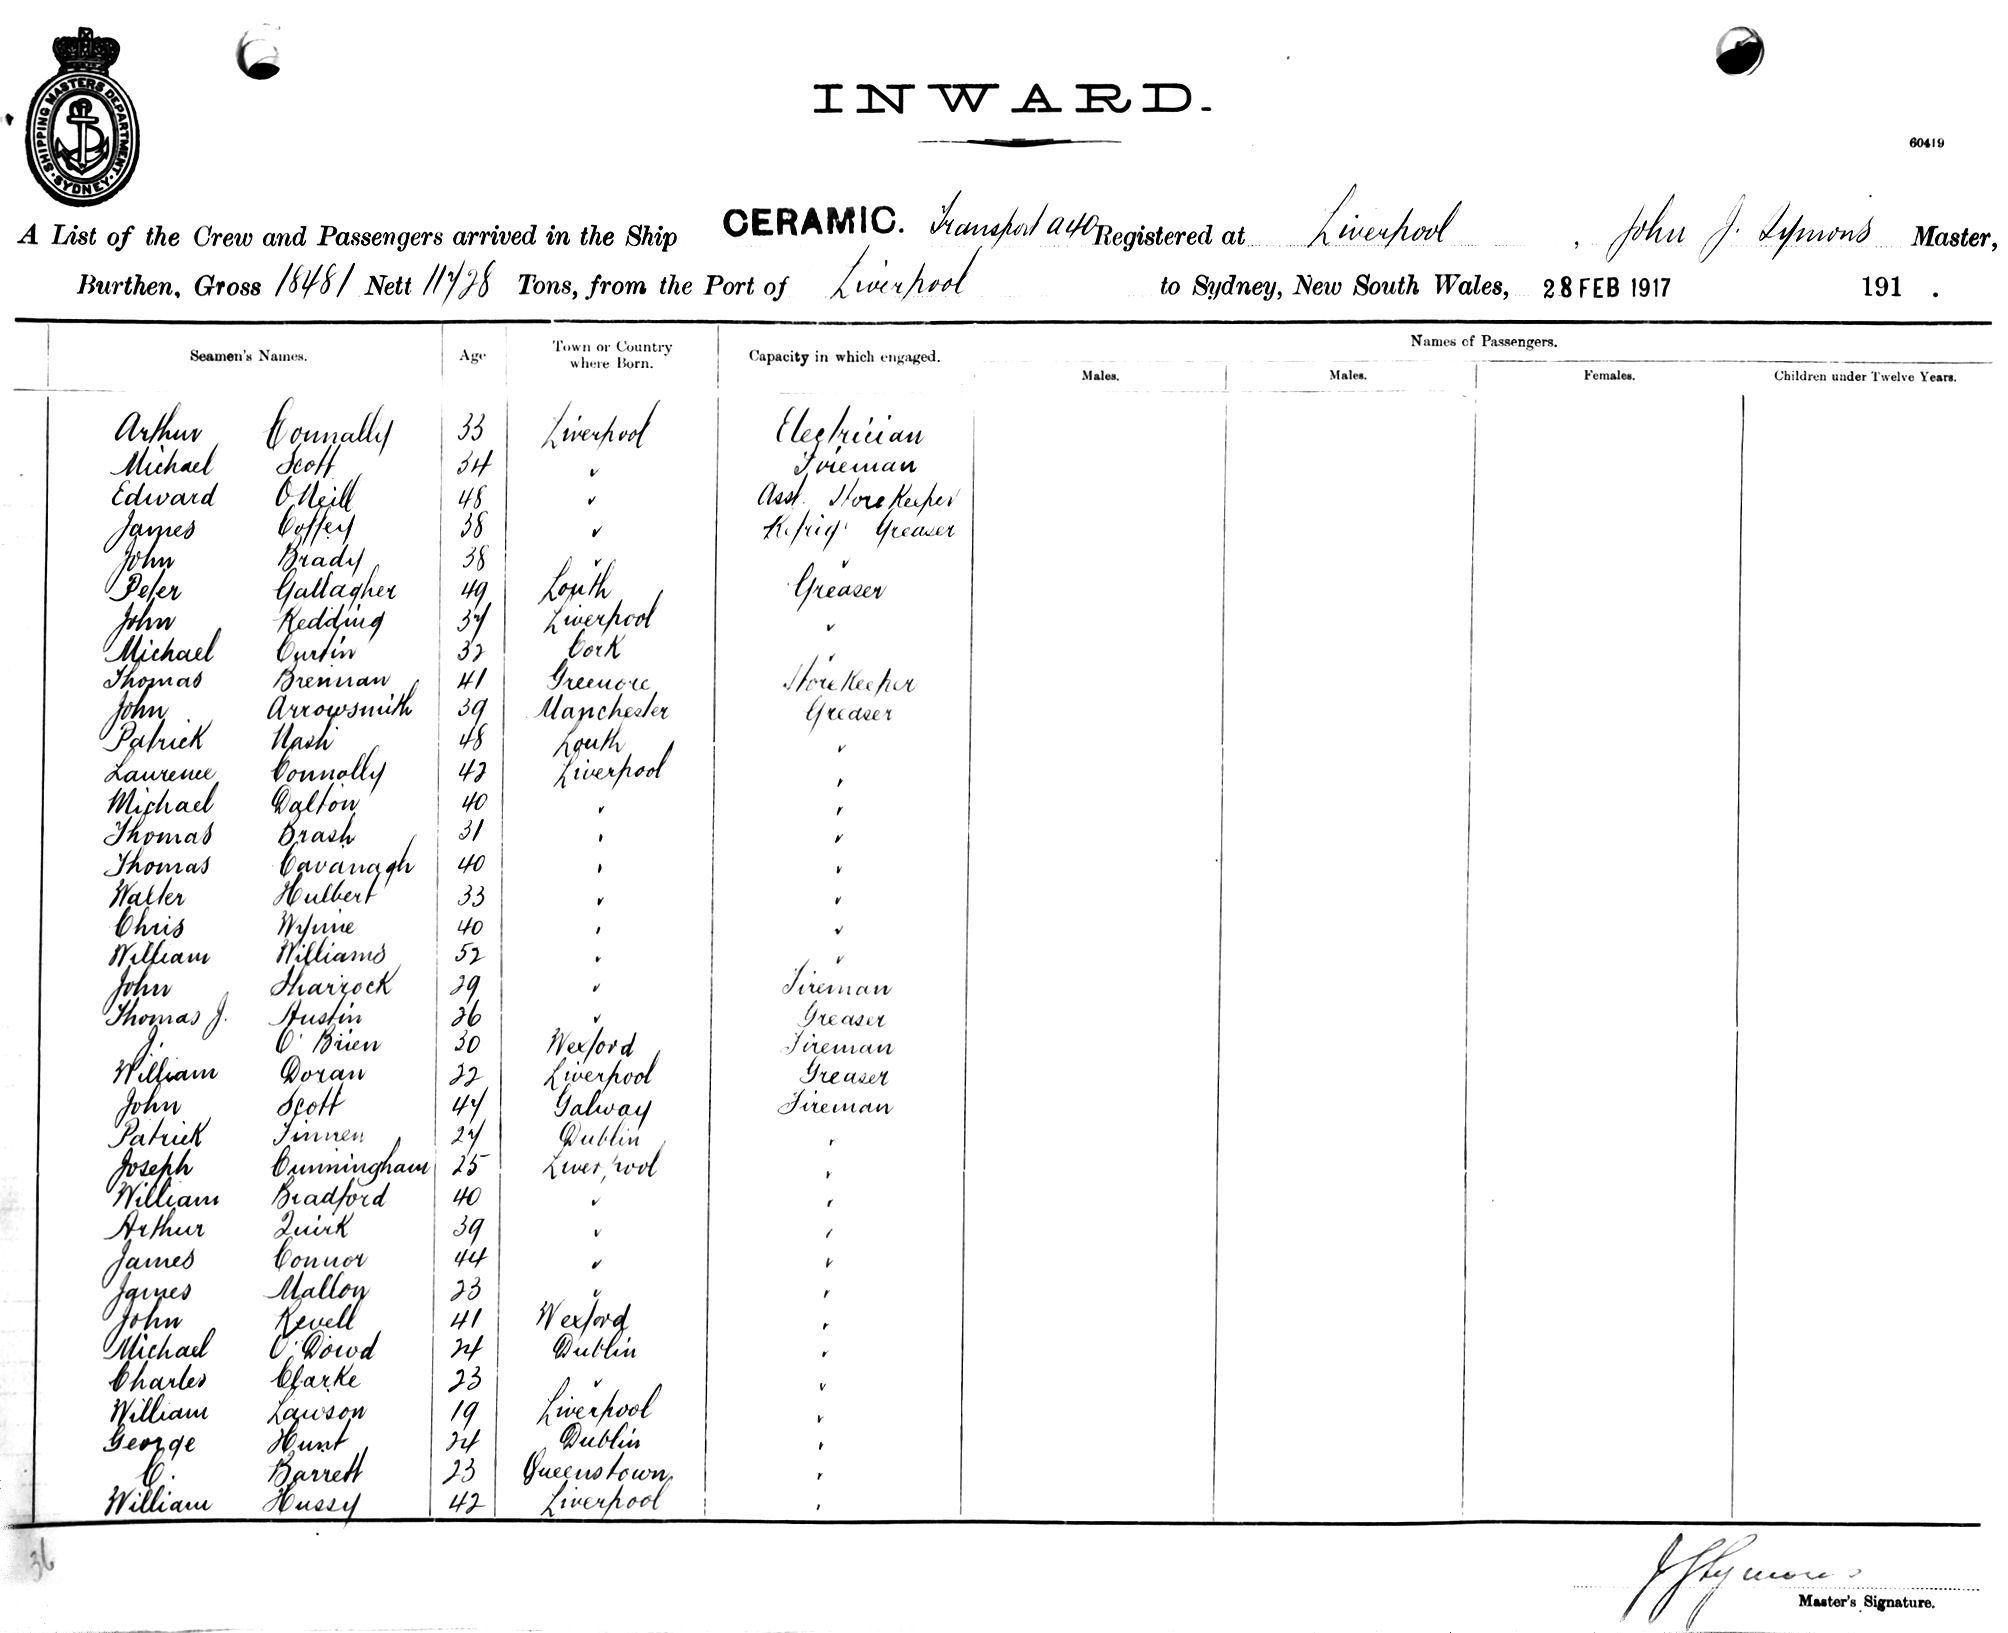 SHIPPING MASTERS DEPARTMENT. SYDNEY.
INWARD.
60419
A List of the Crew and Passengers arrived in the Ship CERAMIC. Transport A40 Registered at Liverpool, John J. Symons Master,
Burthen, Gross 18481 Nett 11728 Tons, from the Port of Liverpool to Sydney, New South Wales, 28 FEB 1917 191 .
Seamen's Names. Age Town or Country where Born. Capacity in which engaged. Names of Passengers.
Males. Males. Females. Children under Twelve Years.
Arthur Connally 33 Liverpool Electrician
Michael Scott 34 " Fireman
Edward O'Neill 48 " Asst. StoreKeeper
James Coffey 38 " Refrig' Greaser
John Brady 38 " "
Peter Gallagher 49 Louth Greaser
John Redding 37 Liverpool "
Michael Curtin 32 Cork "
Thomas Brennan 41 Greenore StoreKeeper
John Arrowsmith 39 Manchester Greaser
Patrick Nash 48 Louth "
Laurence Connolly 42 Liverpool "
Michael Dalton 40 " "
Thomas Brash 31 " "
Thomas Cavanagh 40 " "
Walter Hulbert 33 " "
Chris Wynne 40 " "
William Williams 52 " "
John Sharrock 29 " Fireman
Thomas J. Austin 26 " Greaser
J. O'Brien 30 Wexford Fireman
William Doran 22 Liverpool Greaser
John Scott 47 Galway Fireman
Patrick Finnen 27 Dublin "
Joseph Cunningham 25 Liverpool "
William Bradford 40 " "
Arthur Quirk 39 " "
James Connor 44 " "
James Mallon 23 " "
John Revell 41 Wexford "
Michael O'Dowd 24 Dublin "
Charles Clarke 23 " "
William Lawson 19 Liverpool "
George Hunt 24 Dublin "
C. Barrett 23 Queenstown "
William Hussy 42 Liverpool "
36
J J Symons
Master's Signature.